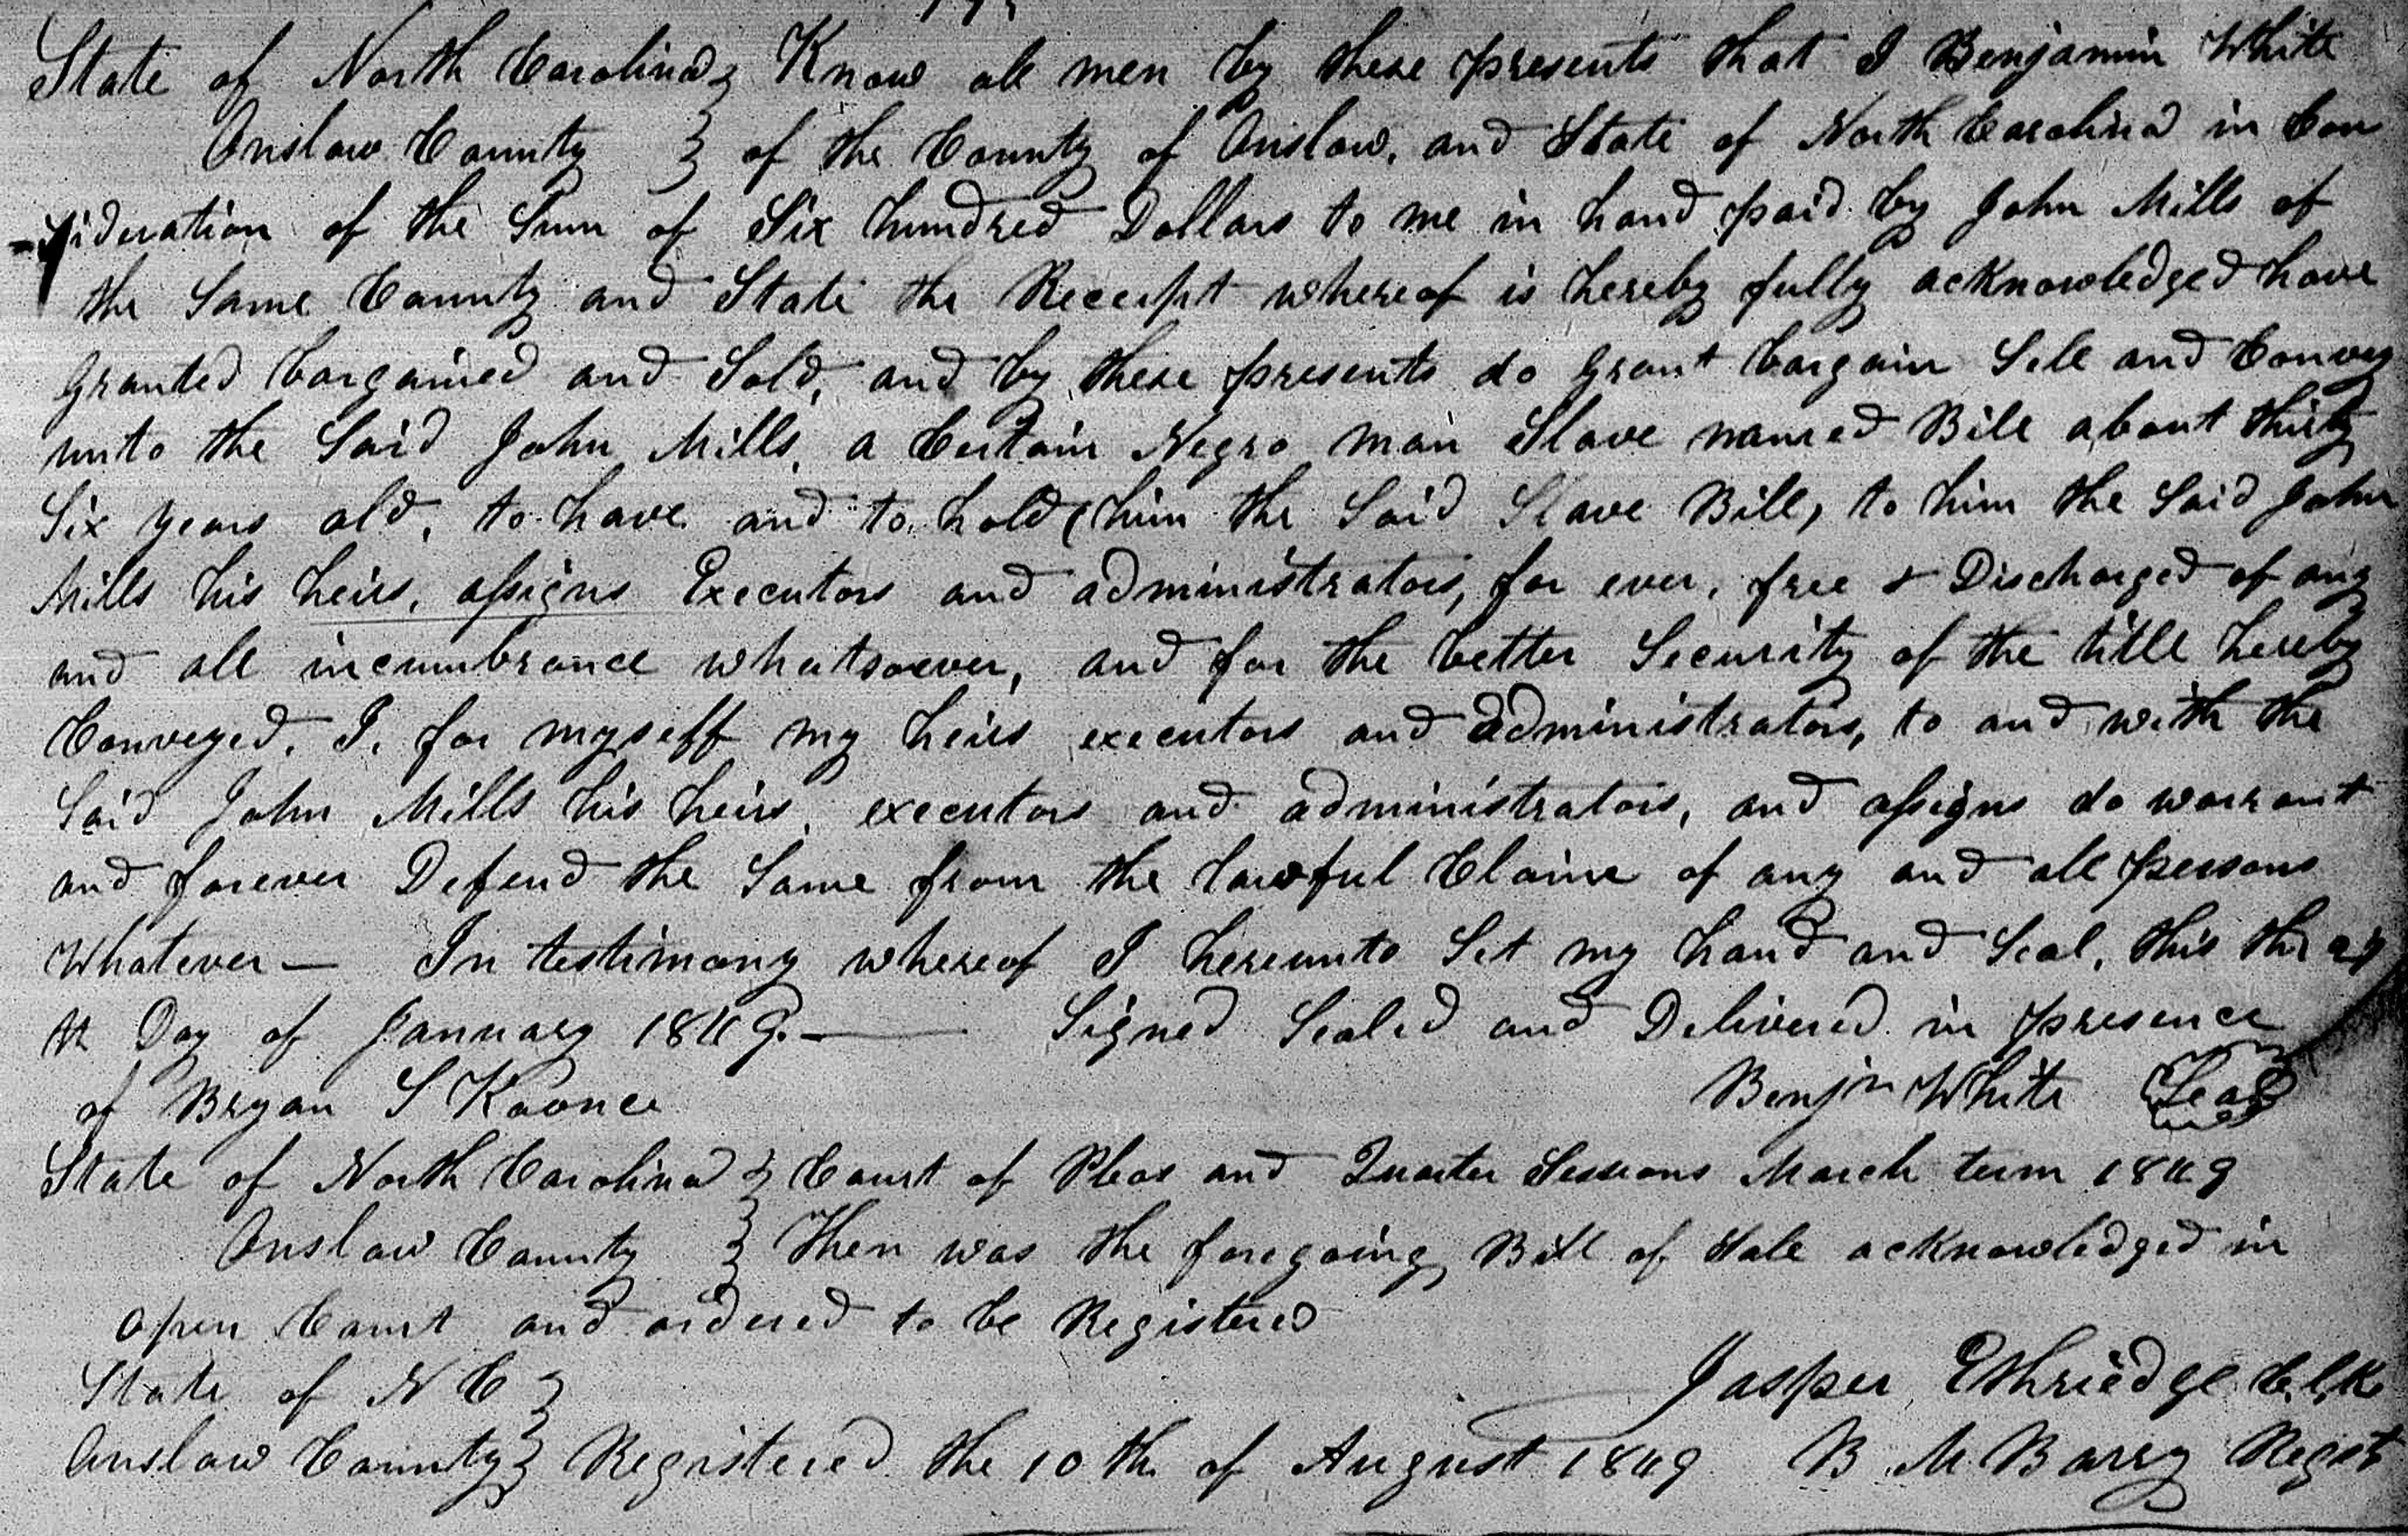 State of North Carolina } Know all men by these presents that I Benjamin White
Onslow County } of the County of Onslow, and State of North Carolina in Con
-sideration of the Sum of Six hundred Dollars to me in hand paid by John Mills of
the Same County and State the Receipt whereof is hereby fully acknowledged have
Granted bargained and Sold, and by these presents do Grant bargain Sell and Convey
unto the Said John Mills, a Certain Negro man Slave named Bill about thirty
Six years old, to have and to hold (him the Said Slave Bill, to him the Said John
Mills his heirs, assigns Executors and administrators, for ever, free & Discharged of any
and all incumbrance whatsoever, and for the better Security of the title hereby
Conveyed, I, for myself my heirs executors and administrators, to and with the
Said John Mills his heirs, executors and administrators, and assigns do warrant
and forever Defend the Same from the lawful Claim of any and all persons
Whatever — In testimony whereof I hereunto Set my hand and Seal, this the
th Day of January 1849. — Signed Sealed and Delivered in presence
of Bryan S Koonce Benjn White Seal
State of North Carolina } Court of Pleas and Quarter Sessions March term 1849
Onslow County } Then was the foregoing Bill of Sale acknowledged in
open Court and ordered to be Registered
State of N C } Jasper Ethriedge Clk
Onslow County } Registered the 10 th of August 1849 B M Barry Regist